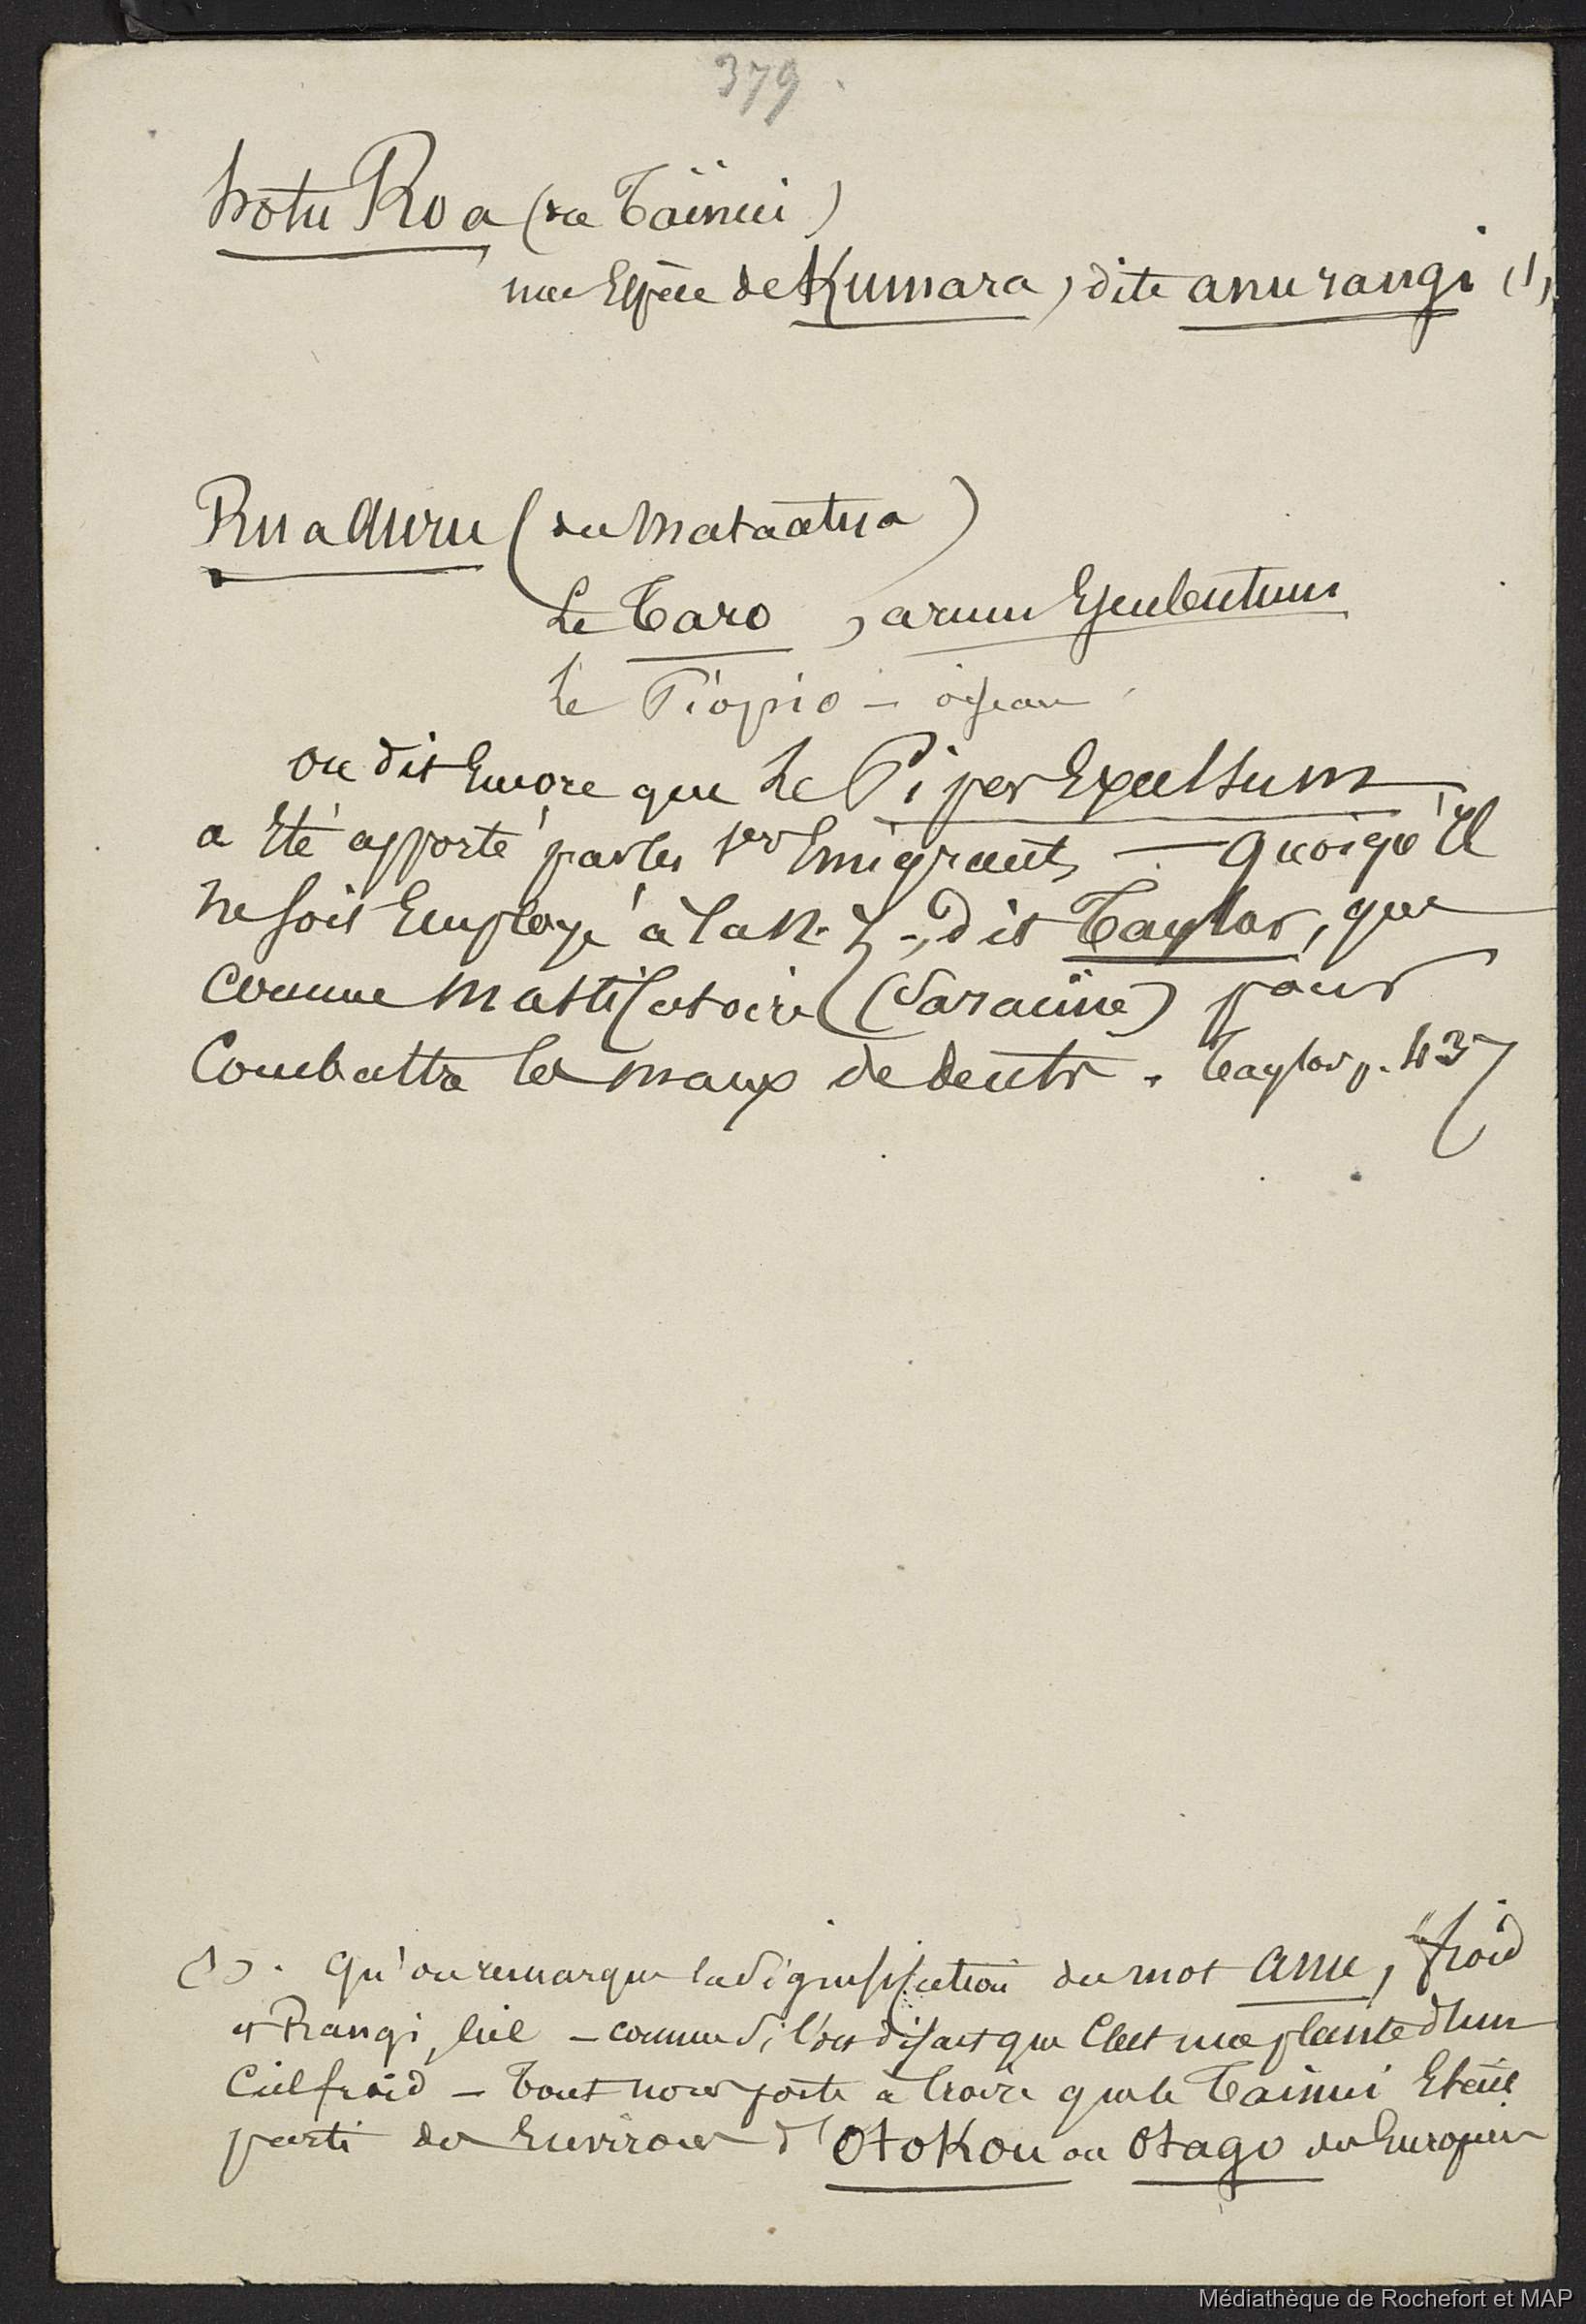 379.
hotu Roa (du Taïnui)
une Espèce de Kumara, dite anurangi (1)
Rua Auru (du Mataatua)
Le Taro, arum Esculentum
le Piopio - oiseau
on dit Encore que le Piper Excelsum
a Eté apporté par les 1ers Emigrants — quoiqu'il
ne soit Employé à la N. Z., dit Taylor, que
comme masticatoire (sa racine) pour
Combattre les maux de dents. Taylor p. 437
(1). qu'on remarque la signification du mot anu, froid
et Rangi, ciel - comme si l'on disait que C'est une plante d'un
Ciel froid - Tout nous porte à croire que le Tainui Etait
parti des Environs d'Otokou ou Otago des Européens
Médiathèque de Rochefort et MAP